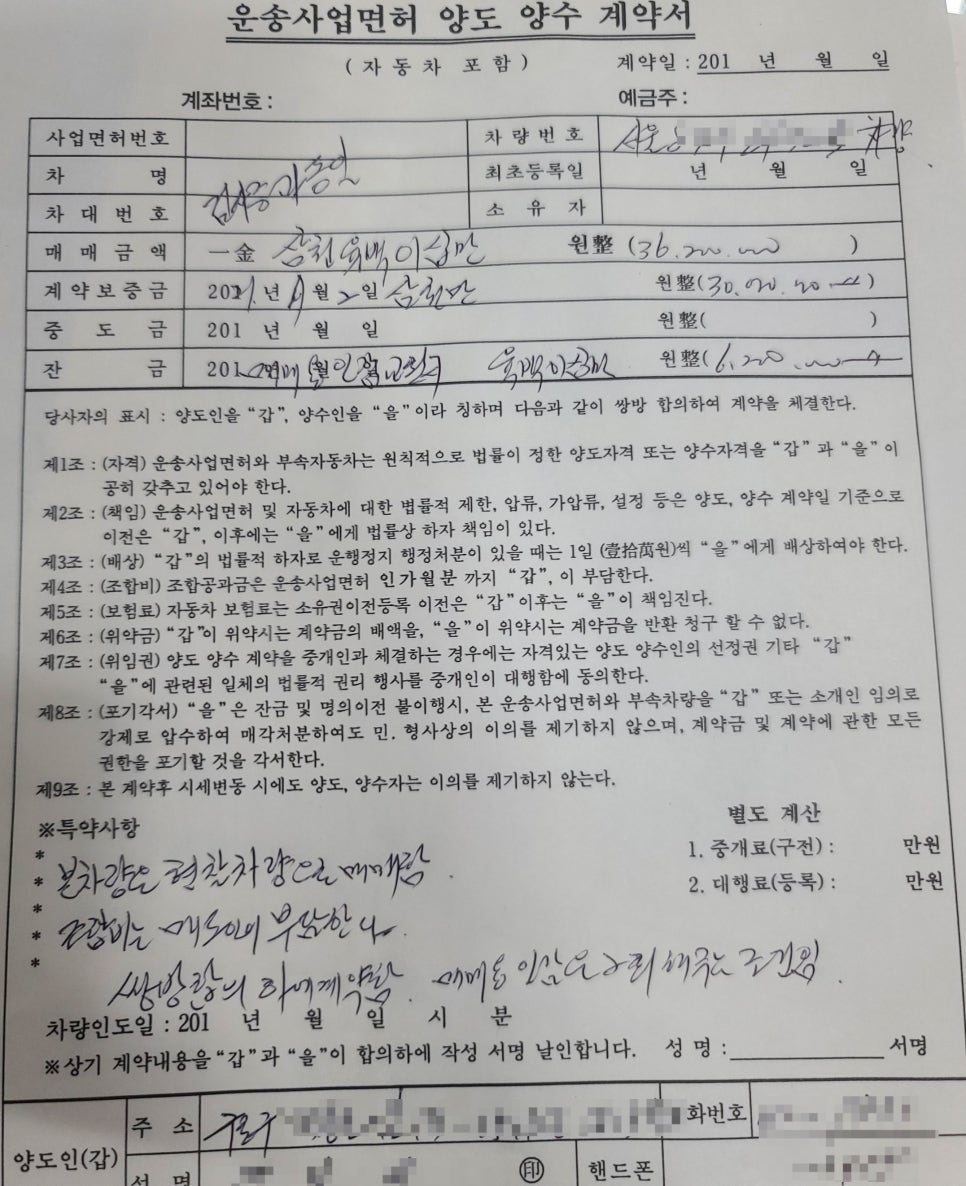 운송사업면허 양도 양수 계약서
( 자동차 포함 ) 계약일 : 201 년 월 일
계좌번호 : 예금주 :
사업면허번호 차량번호 서울
차 명 최초등록일 년 월 일
차대번호 소유자
매매금액 一金 삼천육백이십만 원整 (36.200.000 )
계약보증금 2021.년 월 2일 삼천만 원整(30.000.000 )
중도금 201 년 월 일 원整( )
잔금 201 월 육백이십만 원整(6.200.000 )
당사자의 표시 : 양도인을 “갑”, 양수인을 “을”이라 칭하며 다음과 같이 쌍방 합의하여 계약을 체결한다.
제1조 : (자격) 운송사업면허와 부속자동차는 원칙적으로 법률이 정한 양도자격 또는 양수자격을 “갑” 과 “을” 이
공히 갖추고 있어야 한다.
제2조 : (책임) 운송사업면허 및 자동차에 대한 법률적 제한, 압류, 가압류, 설정 등은 양도, 양수 계약일 기준으로
이전은 “갑”, 이후에는 “을”에게 법률상 하자 책임이 있다.
제3조 : (배상) “갑”의 법률적 하자로 운행정지 행정처분이 있을 때는 1일 (壹拾萬원)씩 “을”에게 배상하여야 한다.
제4조 : (조합비) 조합공과금은 운송사업면허 인가월분 까지 “갑”, 이 부담한다.
제5조 : (보험료) 자동차 보험료는 소유권이전등록 이전은 “갑”이후는 “을”이 책임진다.
제6조 : (위약금) “갑”이 위약시는 계약금의 배액을, “을”이 위약시는 계약금을 반환 청구 할 수 없다.
제7조 : (위임권) 양도 양수 계약을 중개인과 체결하는 경우에는 자격있는 양도 양수인의 선정권 기타 “갑”
“을”에 관련된 일체의 법률적 권리 행사를 중개인이 대행함에 동의한다.
제8조 : (포기각서) “을”은 잔금 및 명의이전 불이행시, 본 운송사업면허와 부속차량을 “갑” 또는 소개인 임의로
강제로 압수하여 매각처분하여도 민. 형사상의 이의를 제기하지 않으며, 계약금 및 계약에 관한 모든
권한을 포기할 것을 각서한다.
제9조 : 본 계약후 시세변동 시에도 양도, 양수자는 이의를 제기하지 않는다.
※특약사항 별도 계산
* 본차량은 현찰차량으로 매매함. 1. 중개료(구전) : 만원
* 2. 대행료(등록) : 만원
* 조합비는 매도인이 부담한다.
*
* 쌍방합의하에계약함. 매매용 인감은 2회 해주는 조건임.
차량인도일 : 201 년 월 일 시 분
※상기 계약내용을“갑”과 “을”이 합의하에 작성 서명 날인합니다. 성 명 : 서명
양도인(갑) 주 소 구로구 화번호
성 명 印 핸드폰